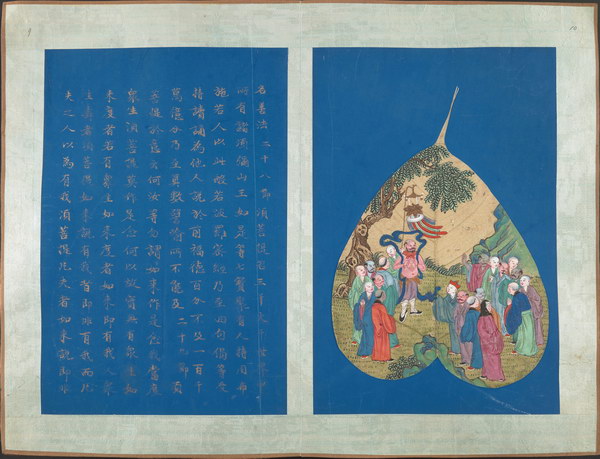 名善法 二十八節 須菩提若三千大千世界中
所有諸須彌山王如是等七寶聚有人持用布
施若人以此般若波羅蜜經乃至四句偈等受
持讀誦為他人說於前福德百分不及一百千
萬億分乃至算數譬喻所不能及 二十九節 須
菩提於意云何汝等勿謂如來作是念我當度
眾生須菩提莫作是念何以故實無有眾生如
來度者若有眾生如來度者如來即有我人眾
生壽者須菩提如來說有我者即非有我而凡
夫之人以為有我須菩提凡夫者如來說即非